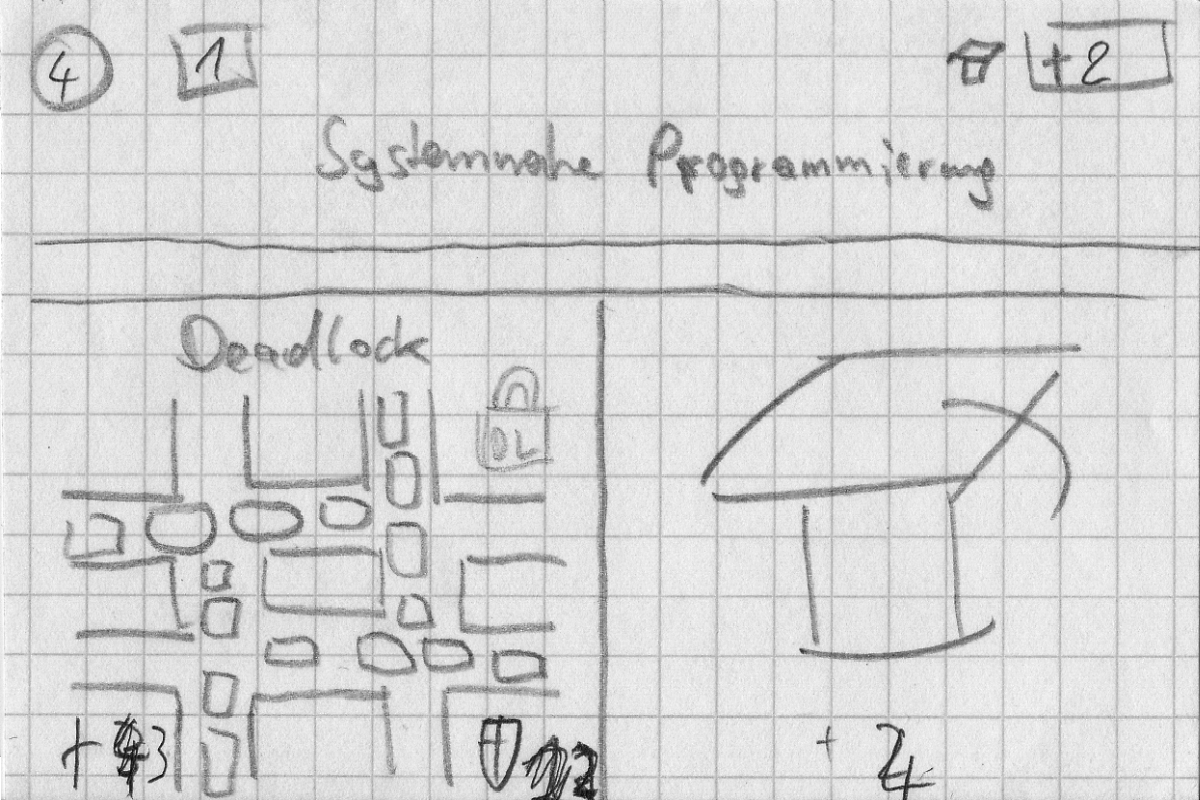 4 1 +2
Systemnahe Programmierung
Deadlock
DL
+ 3 2 + 4